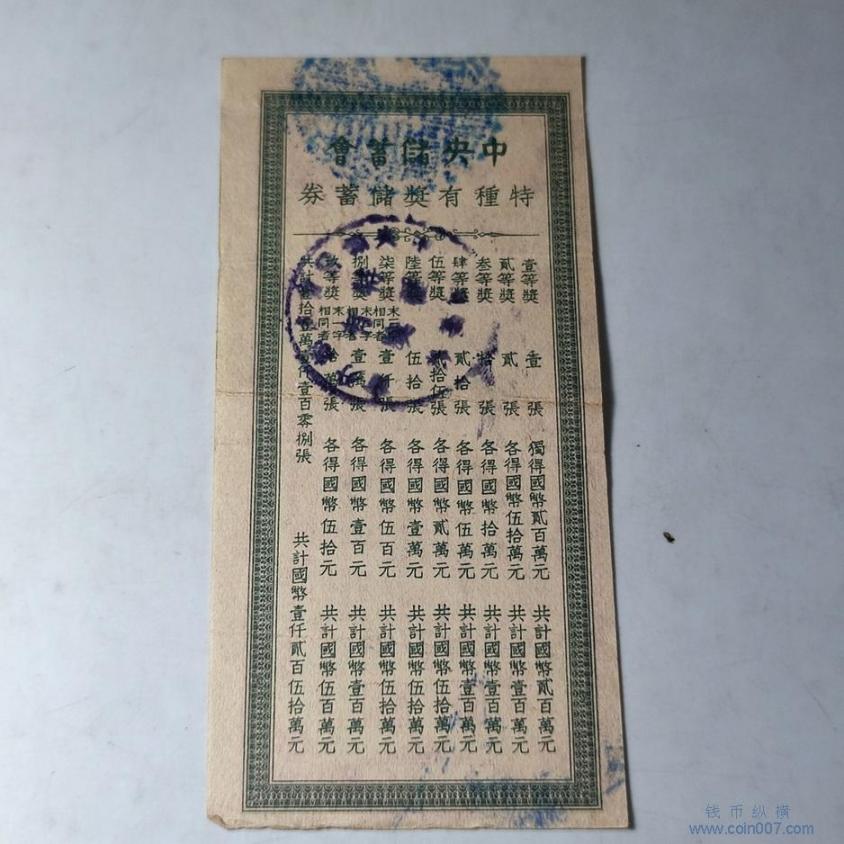 中央儲蓄會
特種有獎儲蓄券
壹等獎 壹張 獨得國幣貳百萬元 共計國幣貳百萬元
貳等獎 貳張 各得國幣伍拾萬元 共計國幣壹百萬元
叁等獎 拾張 各得國幣拾萬元 共計國幣壹百萬元
肆等獎 貳拾張 各得國幣伍萬元 共計國幣壹百萬元
伍等獎 貳拾伍張 各得國幣貳萬元 共計國幣伍拾萬元
陸等獎 伍拾張 各得國幣壹萬元 共計國幣伍拾萬元
柒等獎 末三字相同者 壹仟張 各得國幣伍百元 共計國幣伍拾萬元
捌等獎 末二字相同者 壹萬張 各得國幣壹百元 共計國幣壹百萬元
玖等獎 末一字相同者 拾萬張 各得國幣伍拾元 共計國幣伍百萬元
共計壹拾壹萬壹仟壹百零捌張 共計國幣壹仟貳百伍拾萬元
钱币纵横
www.coin007.com